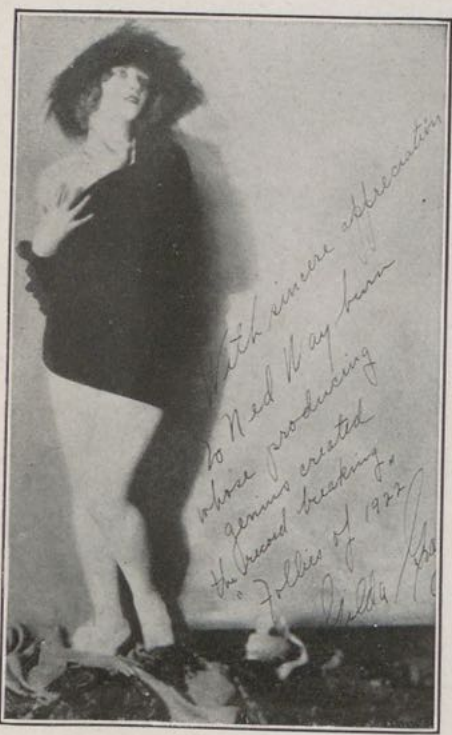 With sincere appreciation
to Ned Wayburn
whose producing
genius created
the record breaking
"Follies of 1922"
Gilda Gray